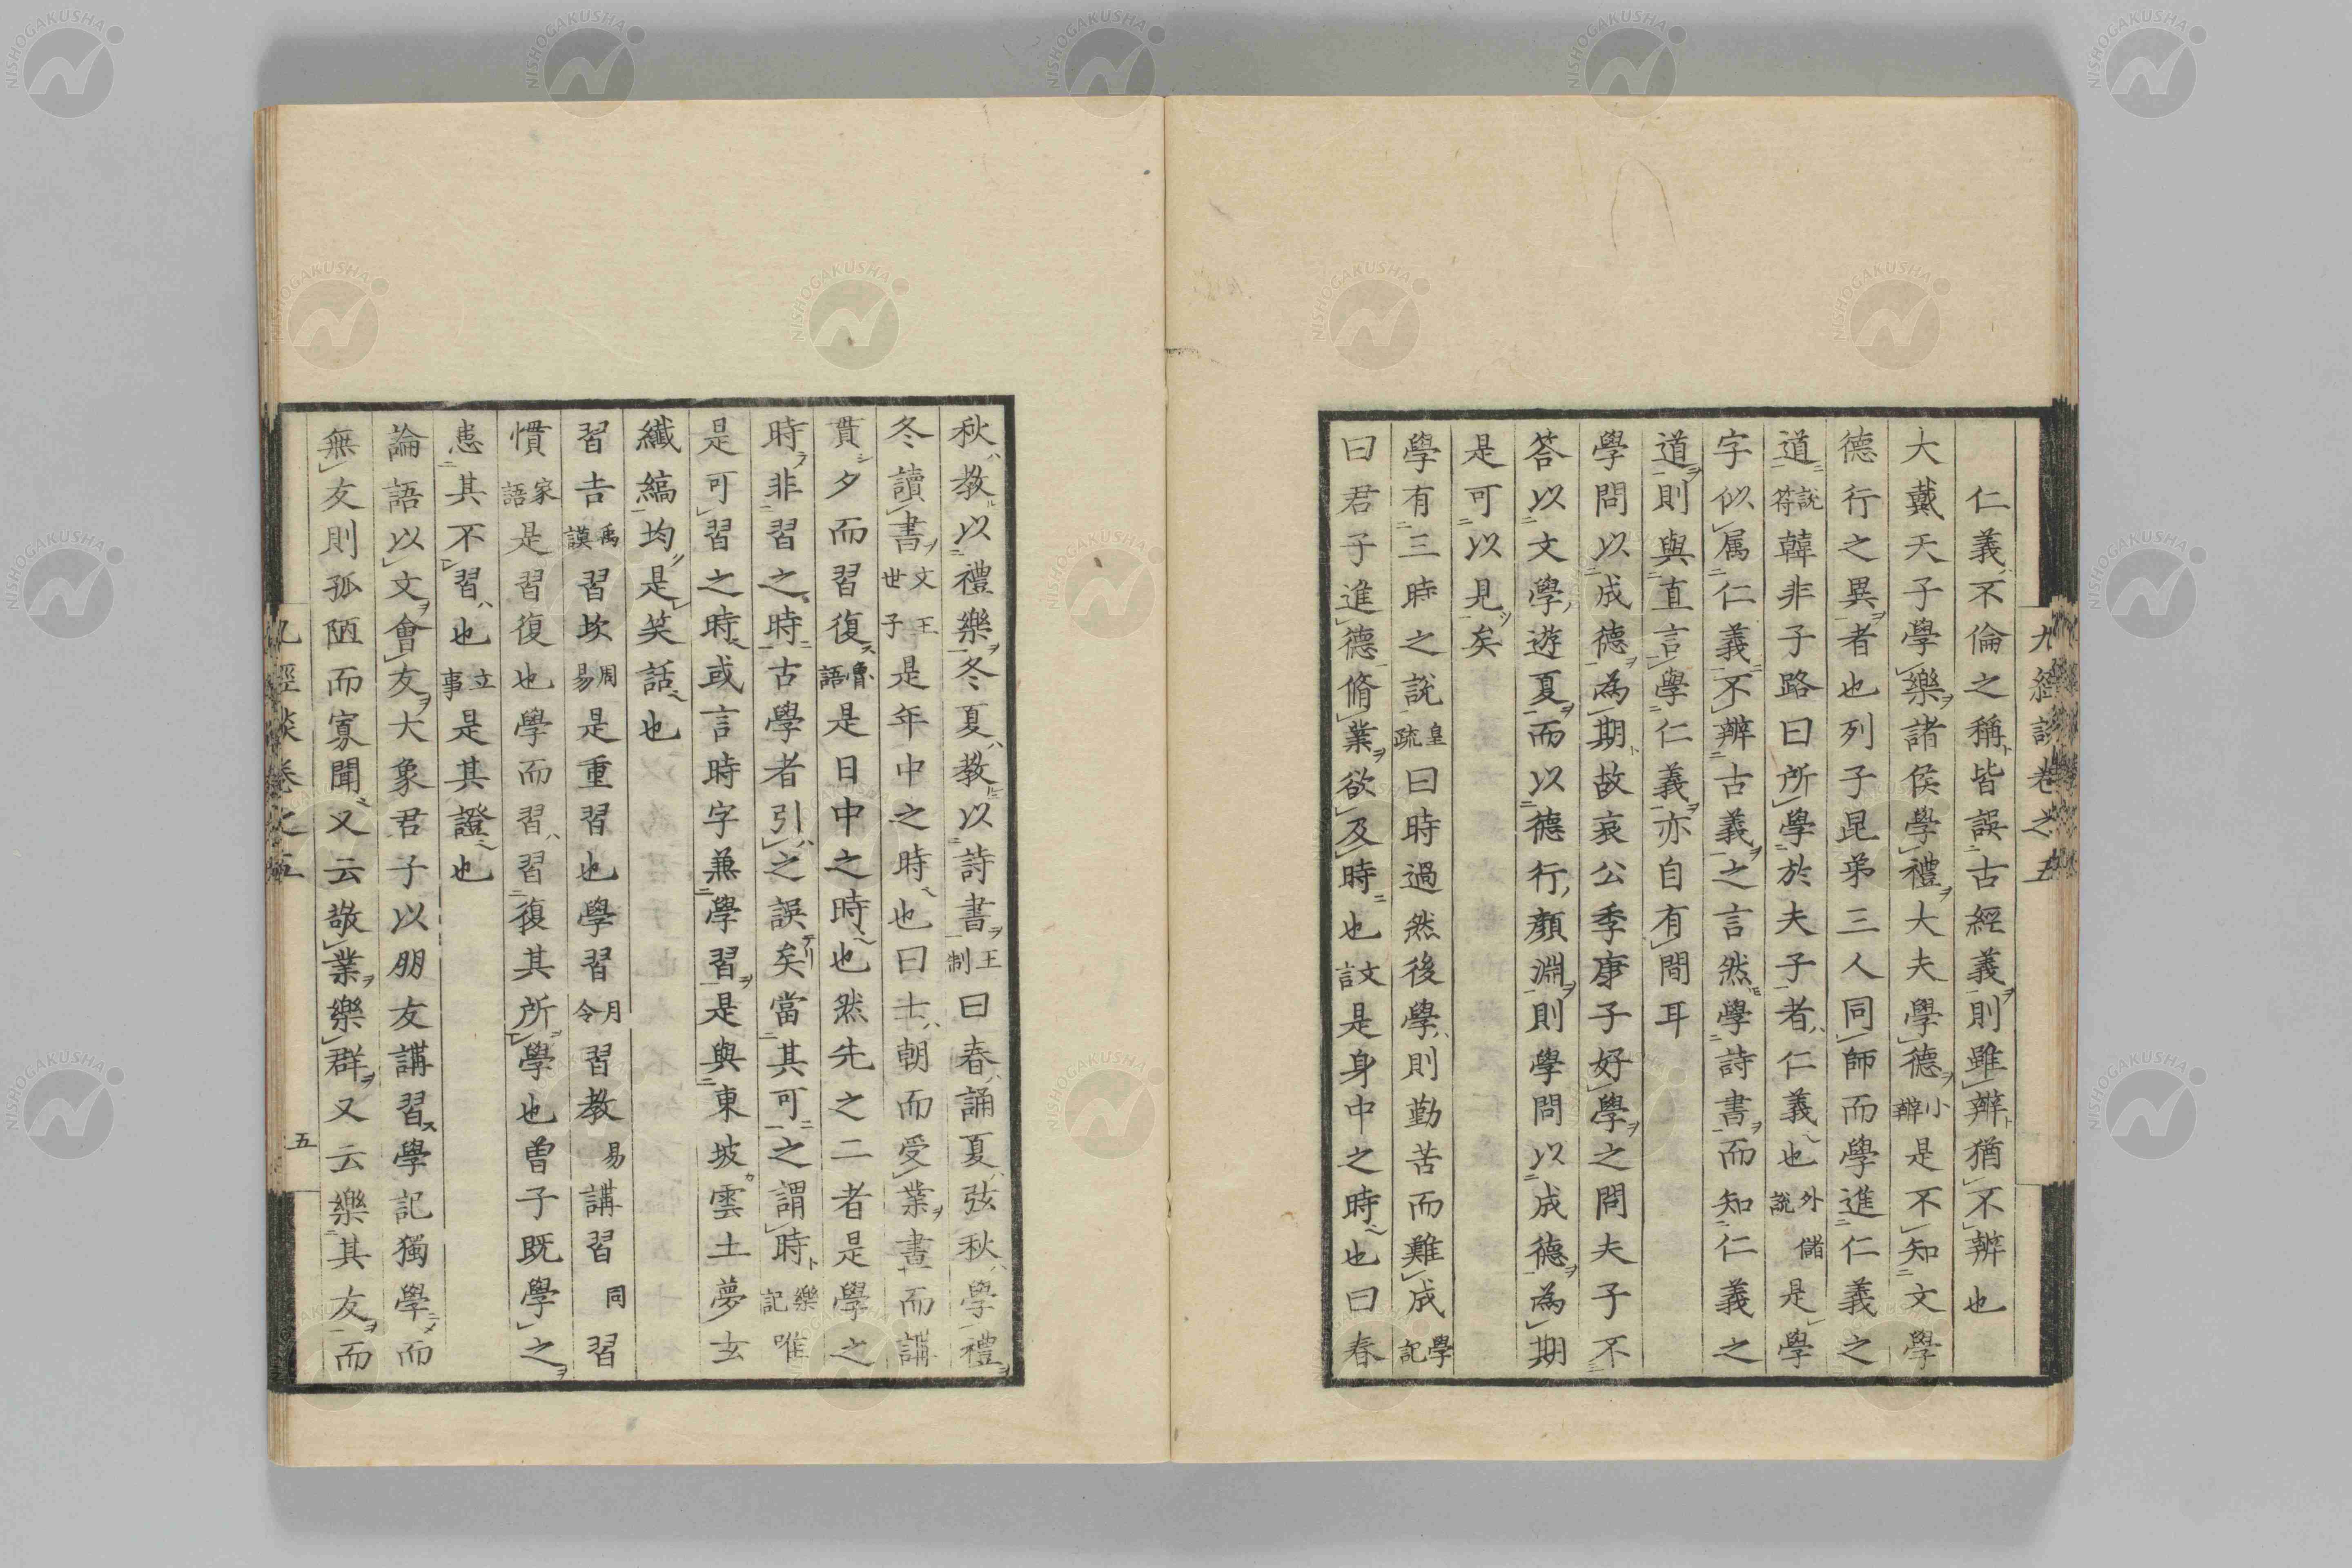 九經談卷之五
仁義不倫之稱皆誤古經義則雖辨猶不辨也
大戴天子學樂諸侯學禮大夫學德小辨是不知文學
德行之異者也列子昆弟三人同師而學進仁義之
道說符韓非子路曰所學於夫子者仁義也外儲說是學
字似属仁義不辨古義之言然學詩書而知仁義之
道則與直言學仁義亦自有間耳
學問以成德為期故哀公季康子好學之問夫子不
答以文學遊夏而以德行顏淵則學問以成德為期
是可以見矣
學有三時之說皇疏曰時過然後學則勤苦而難成學記
曰君子進德脩業欲及時也文言是身中之時也曰春
秋教以禮樂冬夏教以詩書王制曰春誦夏弦秋學禮
冬讀書文王世子是年中之時也曰士朝而受業晝而講
貫夕而習復魯語是日中之時也然先之二者是學之
時非習之時古學者引之誤矣當其可之謂時樂記唯
是可習之時或言時字兼學習是與東坡雲土夢玄
纖縞均是笑話也
習吉禹謨習坎周易是重習也學習月令習教易講習同習
慣家語是習復也學而習習復其所學也曽子既學之
患其不習也立事是其證也
論語以文會友大象君子以朋友講習學記獨學而
無友則孤陋而寡聞又云敬業樂群又云樂其友而
九經談卷之五
五
NISHOGAKUSHA